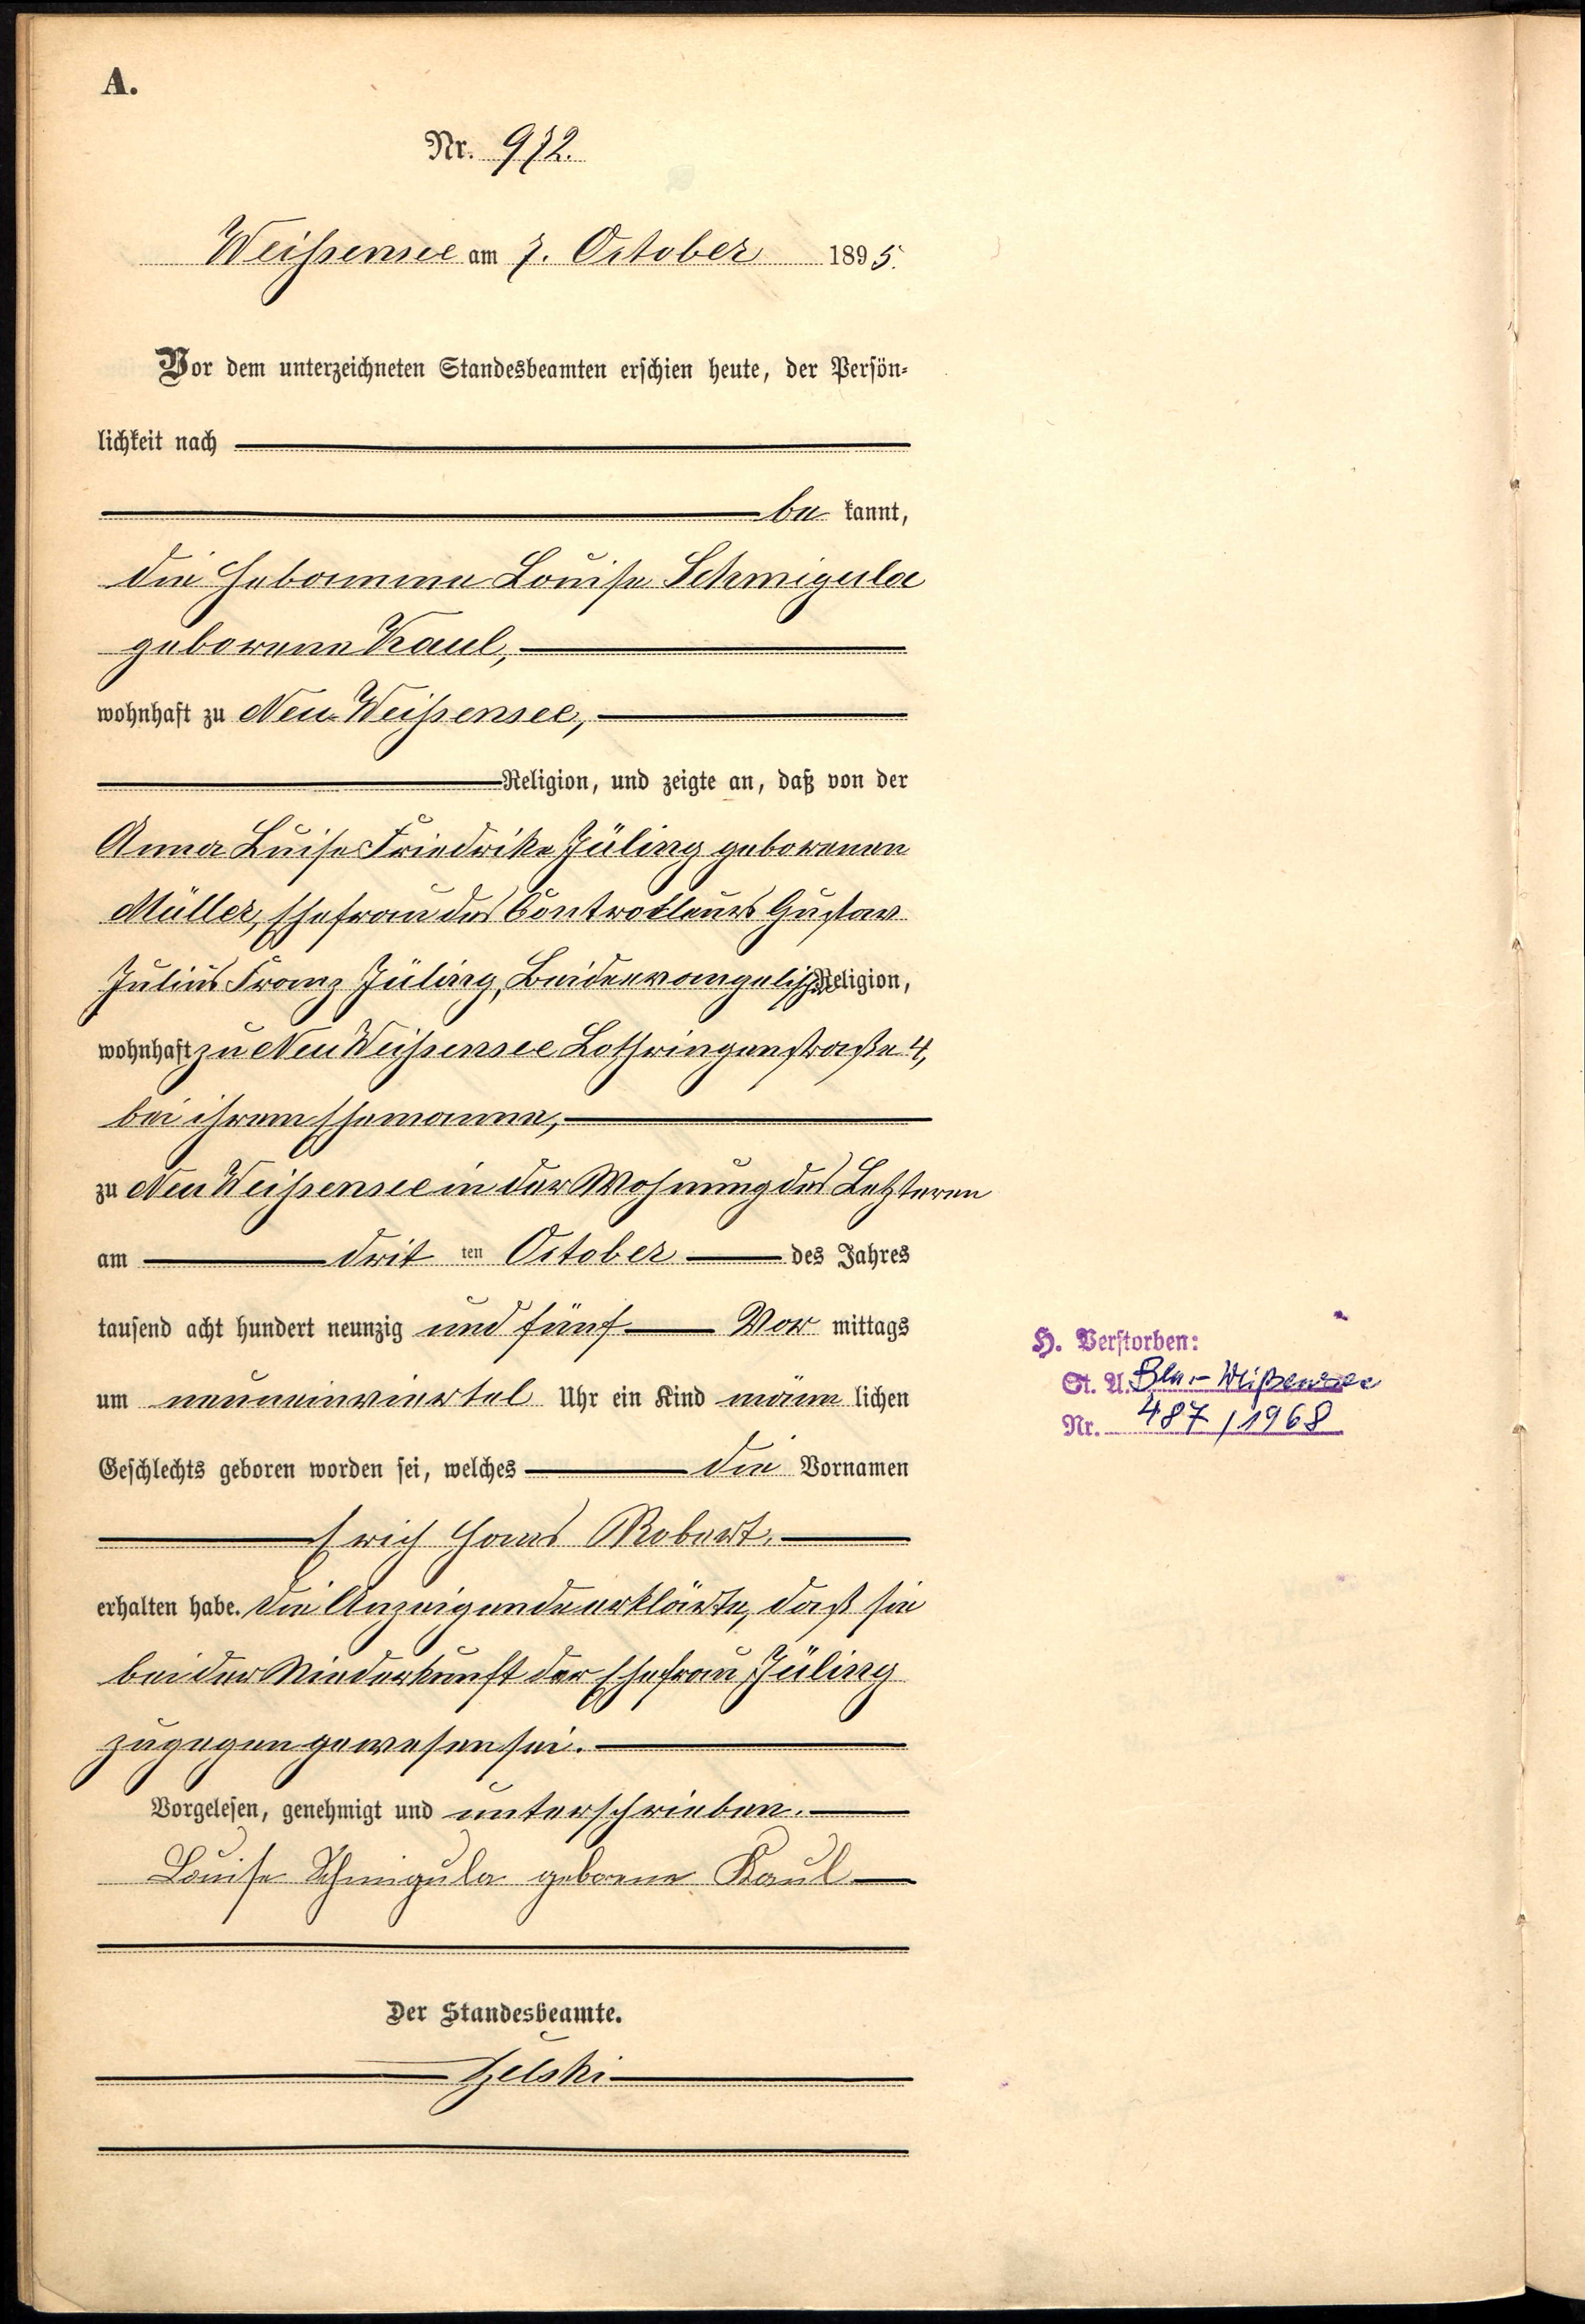 A.
Nr. 972.
Weißensee am 7. October 1895.
Vor dem unterzeichneten Standesbeamten erschien heute, der Persön-
lichkeit nach
be kannt,
die Hebamme Louise Schmigula
geborene Kaul,
wohnhaft zu Neu-Weißensee,
Religion, und zeigte an, daß von der
Anna Luise Friedrike Jüling geborenen
Müller, Ehefrau des Controlleurs Gustav
Julius Franz Jüling, Beide evangelischer Religion,
wohnhaft zu Neu Weißensee Lothringenstraße 4,
bei ihrem Ehemanne,
zu Neu Weißensee in der Wohnung des Letzteren
am drit ten October des Jahres
tausend acht hundert neunzig und fünf Vor mittags
um neuneinviertel Uhr ein Kind männ lichen
Geschlechts geboren worden sei, welches die Vornamen
Erich Hans Robert.
erhalten habe. Die Anzeigende erklärte, daß sie
bei der Niederkunft der Ehefrau Jüling
zugegen gewesen sei.
Vorgelesen, genehmigt und unterschrieben.
Louise Schmigula geborene Kaul
Der Standesbeamte.
Zelski
H. Verstorben:
St. A. Bln.- Weißensee
Nr. 487 / 1968